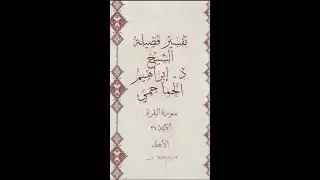 تفسير فضيلة
الشيخ
د. إبراهيم
الحماحمي
سورة البقرة
الآية ٣٤